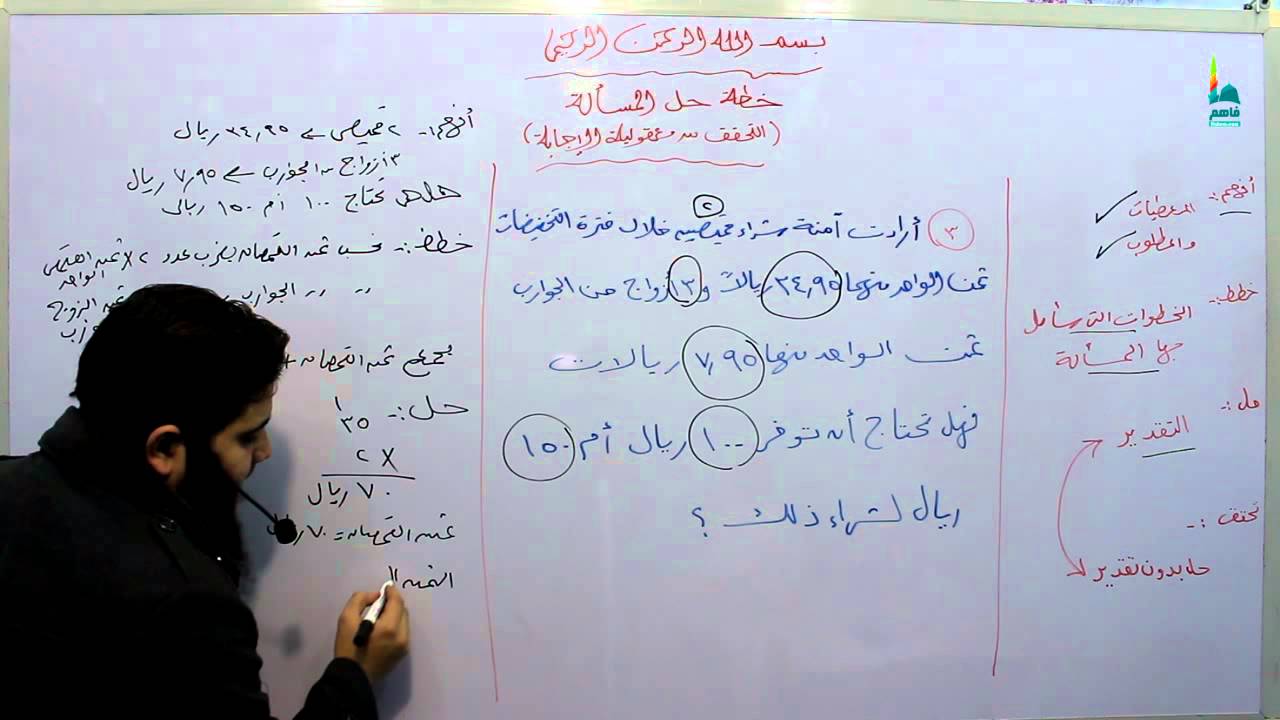 بسم الله الرحمن الرحيم
خطة حل المسألة
(التحقق من معقولية الإجابة)
أفهم:-
المعطيات
والمطلوب
خطط:-
الخطوات التي سأحل
بها المسألة
حل:-
التقدير
تحقق:-
حل بدون تقدير
٢
٣ أرادت آمنة شراء قميصين خلال فترة التخفيضات
ثمن الواحد منهما ٣٤,٩٥ ريالاً و ٣ أزواج من الجوارب
ثمن الواحد منها ٧,٩٥ ريالات
فهل تحتاج أن توفر ١٠٠ ريال أم ١٥٠
ريال لشراء ذلك ؟
أفهم:- ٢ قميص ← ٣٤,٩٥ ريال
٣ أزواج من الجوارب ← ٧,٩٥ ريال
هل تحتاج ١٠٠ أم ١٥٠ ريال
خطط:- نحسب ثمن القمصان بضرب عدد ٢ × ثمن القميص
الواحد
,, ,, الجوارب
نجمع ثمن القمصان +
حل:-
١
٣٥
٢ ×
٧٠ ريال
ثمن القمصان = ٧٠
الثمن ال
فاهم